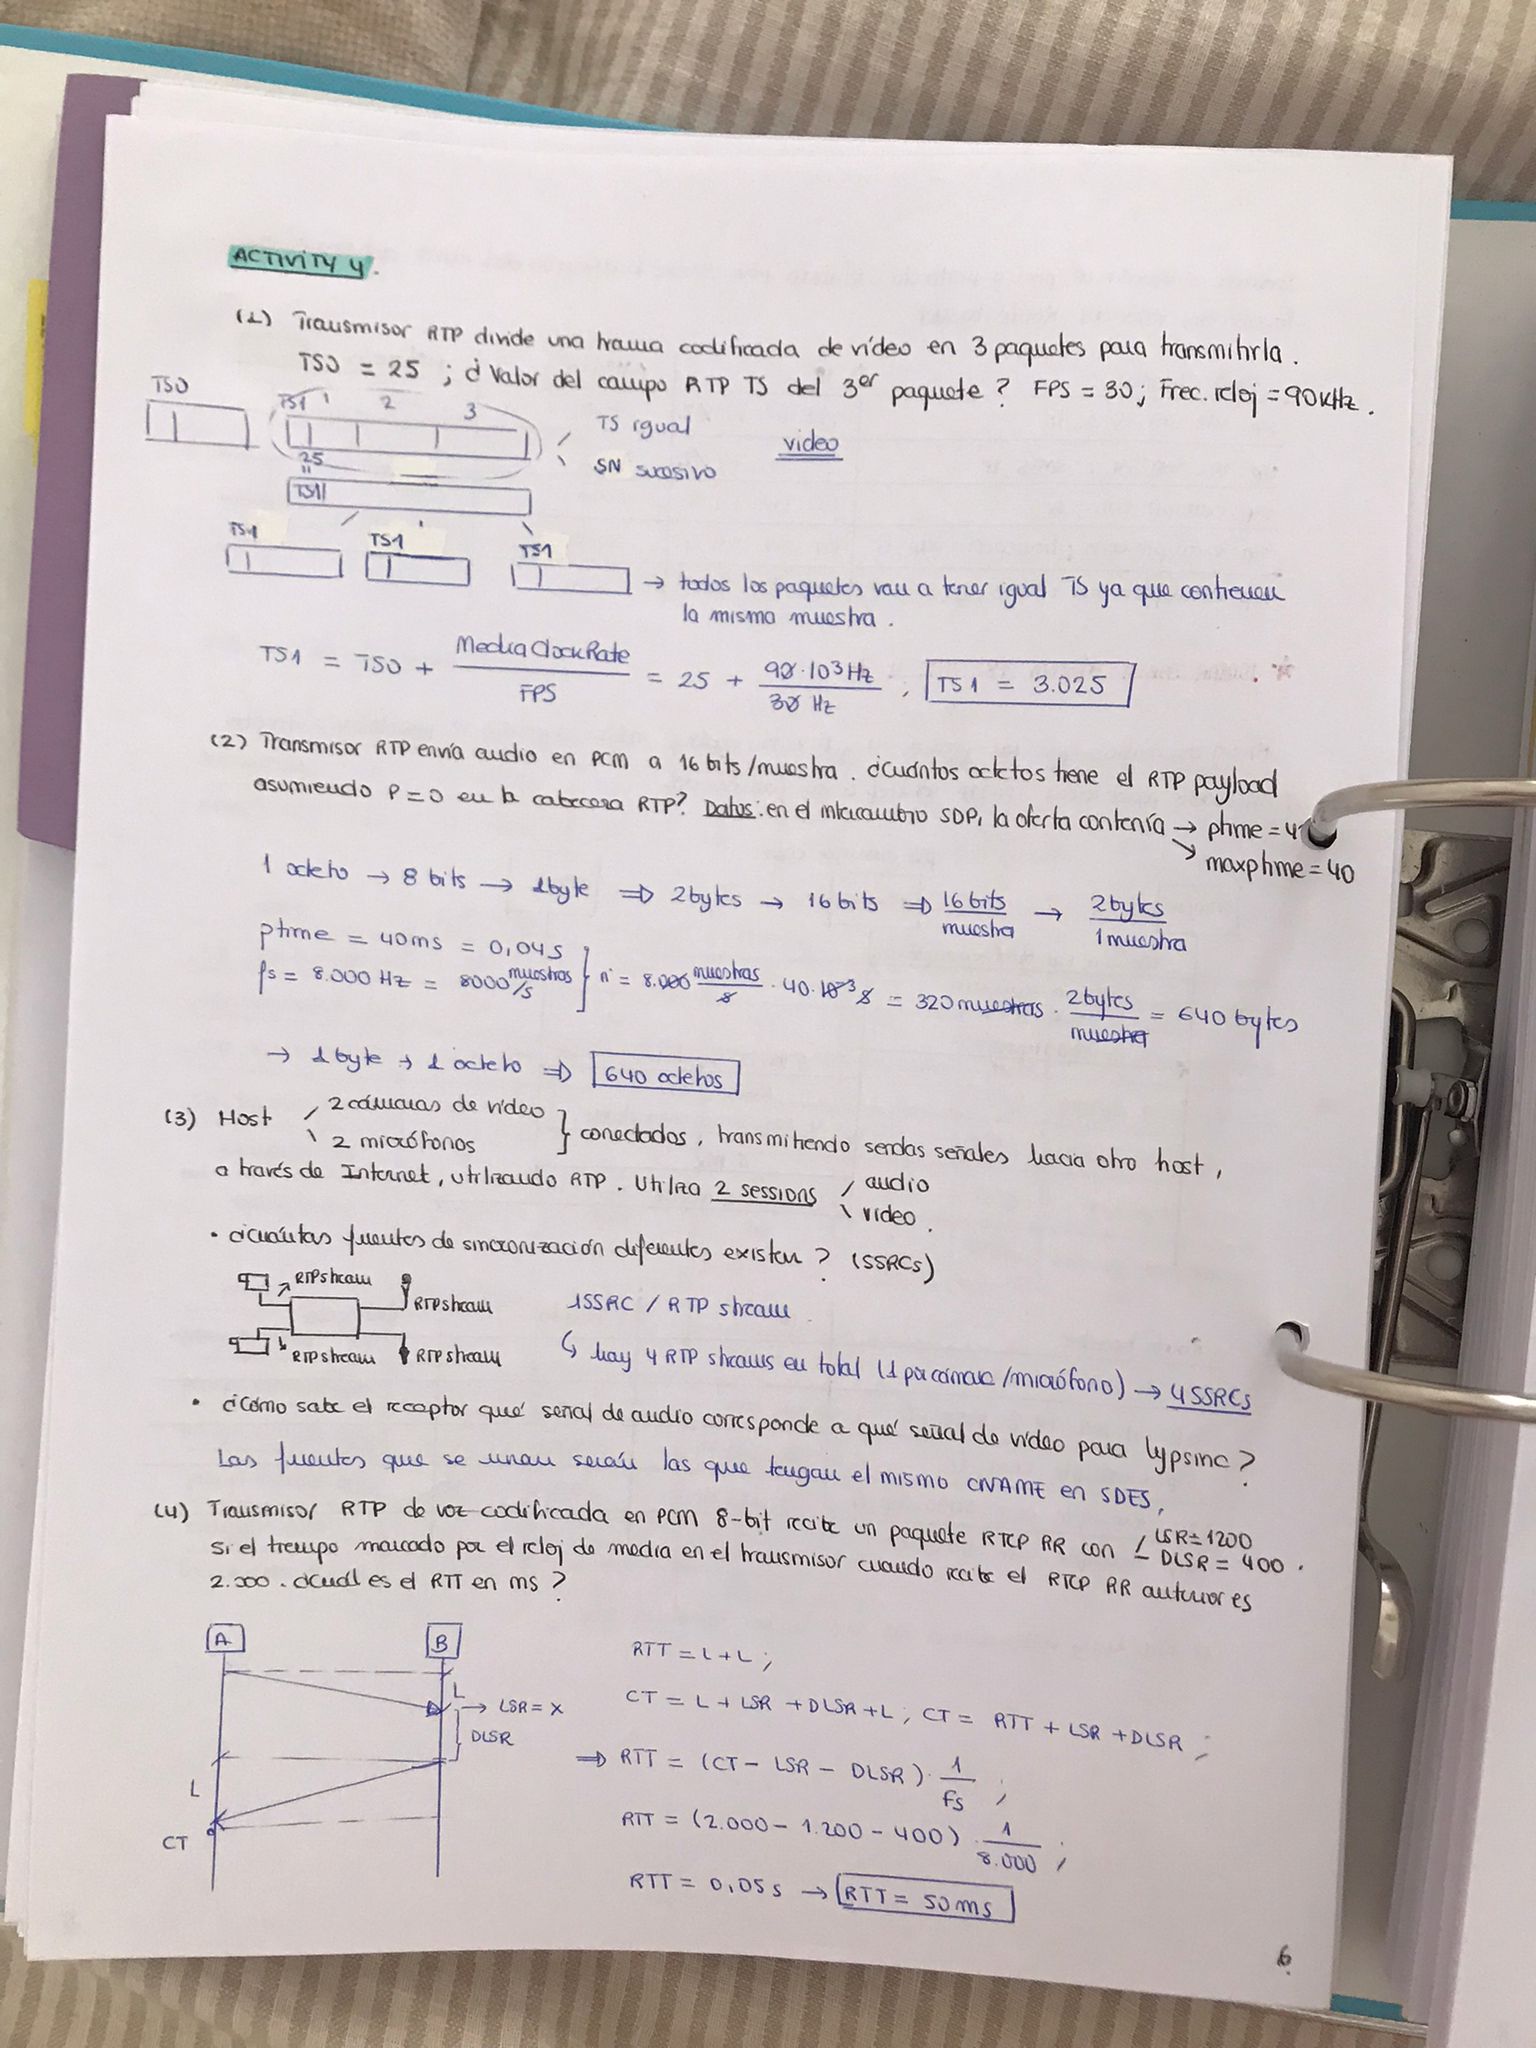 ACTIVITY 4.
(1) Transmisor RTP divide una trama codificada de vídeo en 3 paquetes para transmitirla.
TS0 = 25 ; ¿Valor del campo RTP TS del 3er paquete? FPS = 30; Frec. reloj = 90kHz.
TS0
TS1 1 2 3
TS igual
SN sucesivo
video
25
TS1
TS1 TS1 TS1
→ todos los paquetes van a tener igual TS ya que contienen
la misma muestra.
TS1 = TS0 + MediaClockRate / FPS = 25 + 90·10³ Hz / 30 Hz ; TS1 = 3.025
(2) Transmisor RTP envía audio en PCM a 16 bits/muestra. ¿Cuántos octetos tiene el RTP payload
asumiendo P=0 en la cabecera RTP? Datos: en el intercambio SDP, la oferta contenía → ptime = 4
→ maxptime = 40
1 octeto → 8 bits → 1 byte ⇒ 2 bytes → 16 bits ⇒ 16 bits / muestra → 2 bytes / 1 muestra
ptime = 40ms = 0,04s
fs = 8.000 Hz = 8000 muestras/s } n = 8.000 muestras/s · 40·10⁻³ s = 320 muestras · 2 bytes / muestra = 640 bytes
→ 1 byte → 1 octeto ⇒ 640 octetos
(3) Host / 2 cámaras de vídeo
\ 2 micrófonos } conectados, transmitiendo sendas señales hacia otro host,
a través de Internet, utilizando RTP. Utiliza 2 sessions / audio
\ video.
• ¿Cuántas fuentes de sincronización diferentes existen? (SSRCs)
RTPstream RTPstream
RTPstream RTPstream
1SSRC / RTP stream
↳ hay 4 RTP streams en total (1 por cámara/micrófono) → 4 SSRCs
• ¿Cómo sabe el receptor qué señal de audio corresponde a qué señal de vídeo para lypsinc?
Las fuentes que se unan serán las que tengan el mismo CNAME en SDES,
(4) Transmisor RTP de voz codificada en PCM 8-bit recibe un paquete RTCP RR con / LSR = 1200
– DLSR = 400.
Si el tiempo marcado por el reloj de media en el transmisor cuando recibe el RTCP RR anterior es
2.000. ¿Cuál es el RTT en ms?
A B
L
→ LSR = X
DLSR
L
CT
RTT = L + L ;
CT = L + LSR + DLSR + L ; CT = RTT + LSR + DLSR ;
⇒ RTT = (CT – LSR – DLSR) · 1 / fs ;
RTT = (2.000 – 1.200 – 400) · 1 / 8.000 ;
RTT = 0,05 s → RTT = 50 ms
6